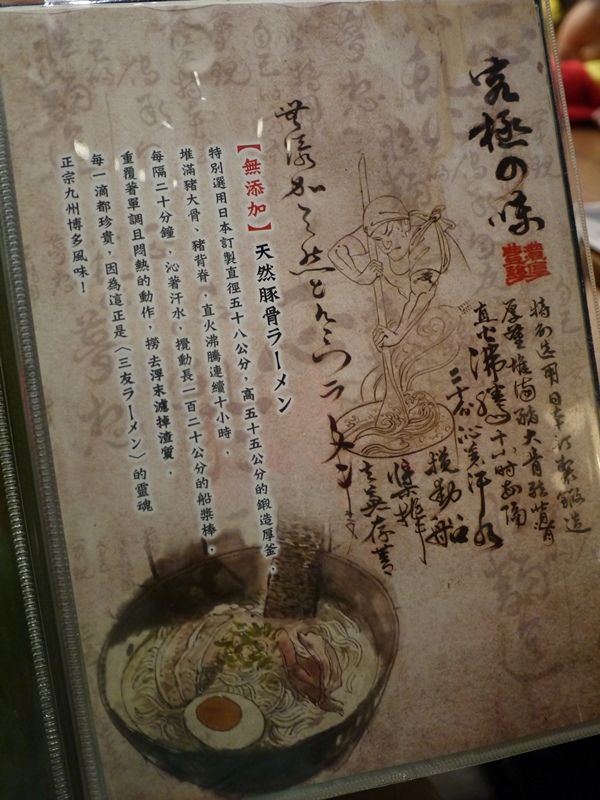 究極の味
特別選用日本訂製鍛造
直火沸騰十小時每隔
無添加天然とんこつラーメン
【無添加】天然豚骨ラーメン
特別選用日本訂製直徑五十八公分,高五十五公分的鍛造厚釜,
堆滿豬大骨、豬背脊,直火沸騰連續十小時,
每隔二十分鐘,沁著汗水,攪動長一百二十公分的船槳棒,
重覆著單調且悶熱的動作,撈去浮末濾掉渣質,
每一滴都珍貴,因為這正是〈三友ラーメン〉的靈魂
正宗九州博多風味!